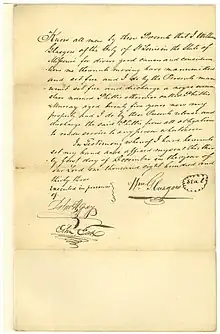 Know all men by these Presents that I William
Glasgow of the City of St Louis in the State of
Missouri for divers good causes and consider-
ations me thereunto moving have manumitted
and set free and I do by these Presents man-
umit set free and discharge a negro man
slave named Phillis otherwise called Phillis
Murray aged twenty five years now my
property And I do by these Presents release and
discharge the said Phillis from all obligation
to render service to any person whatsoever
In Testimony whereof I have hereunto
set my hand and affixed my seal this thirty
first day of December in the year of
our Lord one thousand eight hundred and
thirty three
Executed in presence
of
Wm Glasgow
Seal